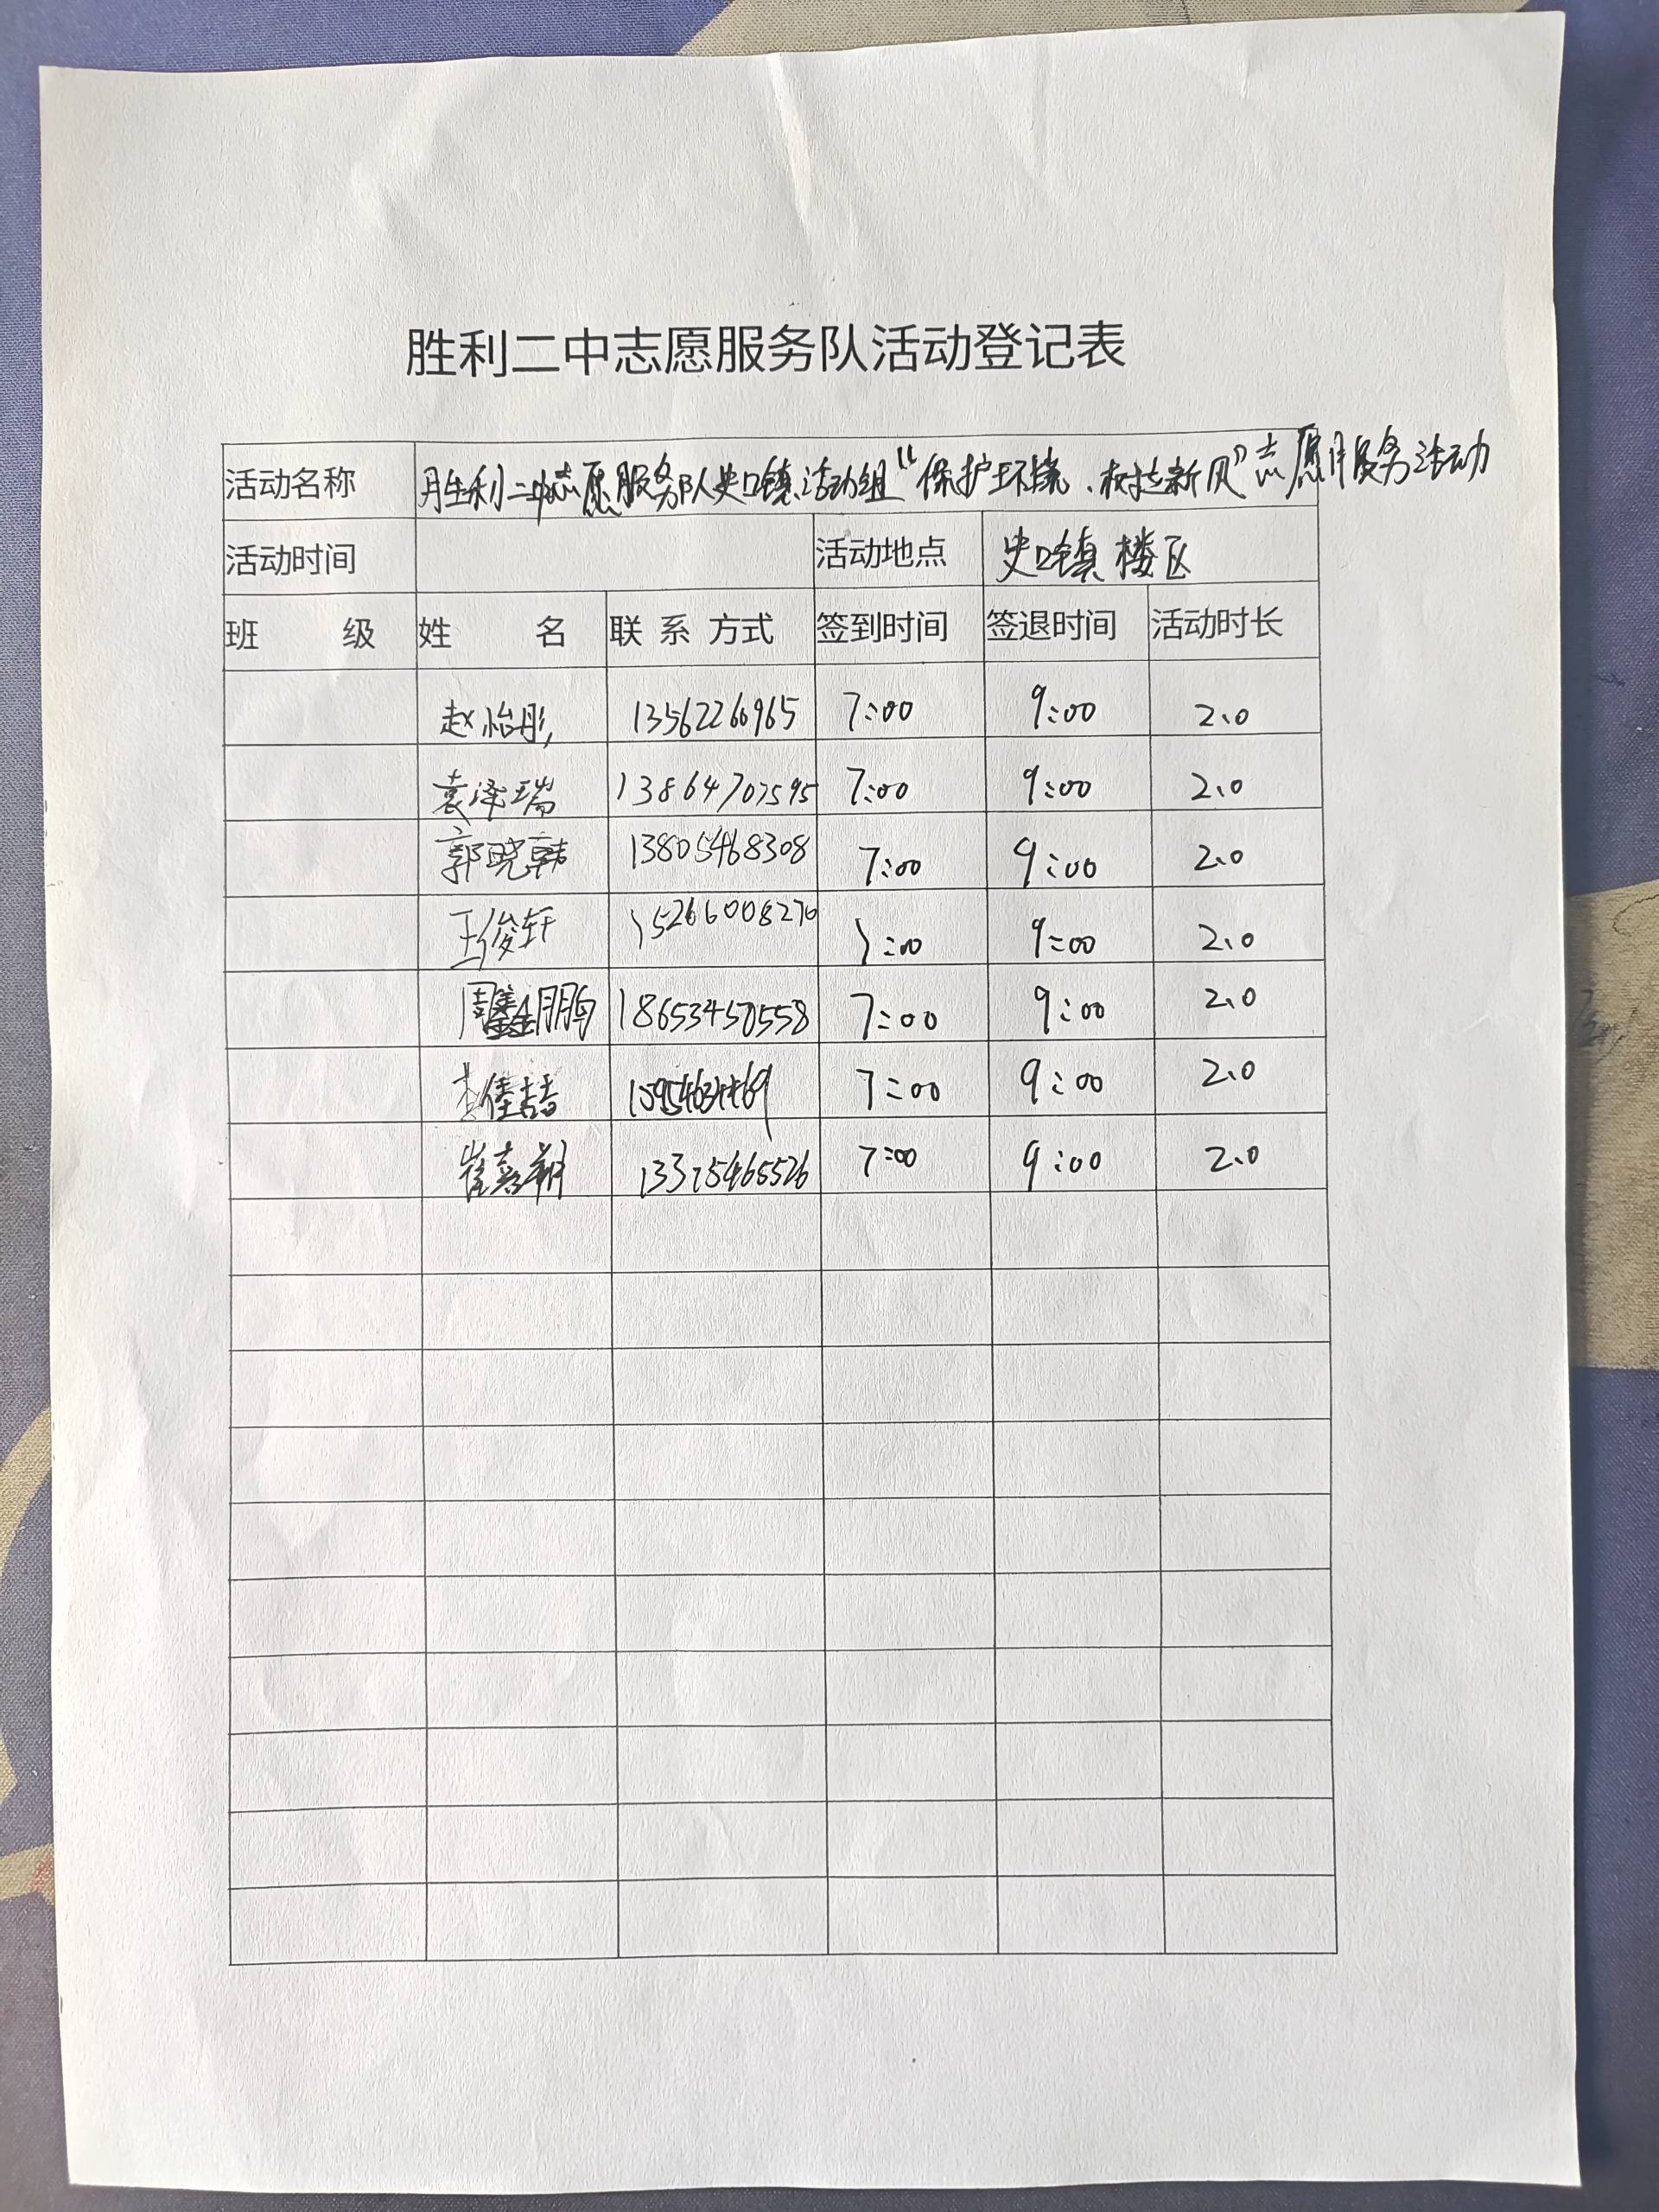 胜利二中志愿服务队活动登记表
活动名称 胜利二中志愿服务队史口镇活动组“保护环境、树立新风”志愿服务活动
活动时间 活动地点 史口镇楼区
班 级 姓 名 联 系 方式 签到时间 签退时间 活动时长
赵怡彤 13562266965 7:00 9:00 2.0
袁泽瑞 13864707595 7:00 9:00 2.0
郭晓韩 13805468308 7:00 9:00 2.0
王俊轩 15266008270 7:00 9:00 2.0
周鑫鹏 18653450558 7:00 9:00 2.0
李佳喆 7:00 9:00 2.0
崔嘉翔 13375465526 7:00 9:00 2.0